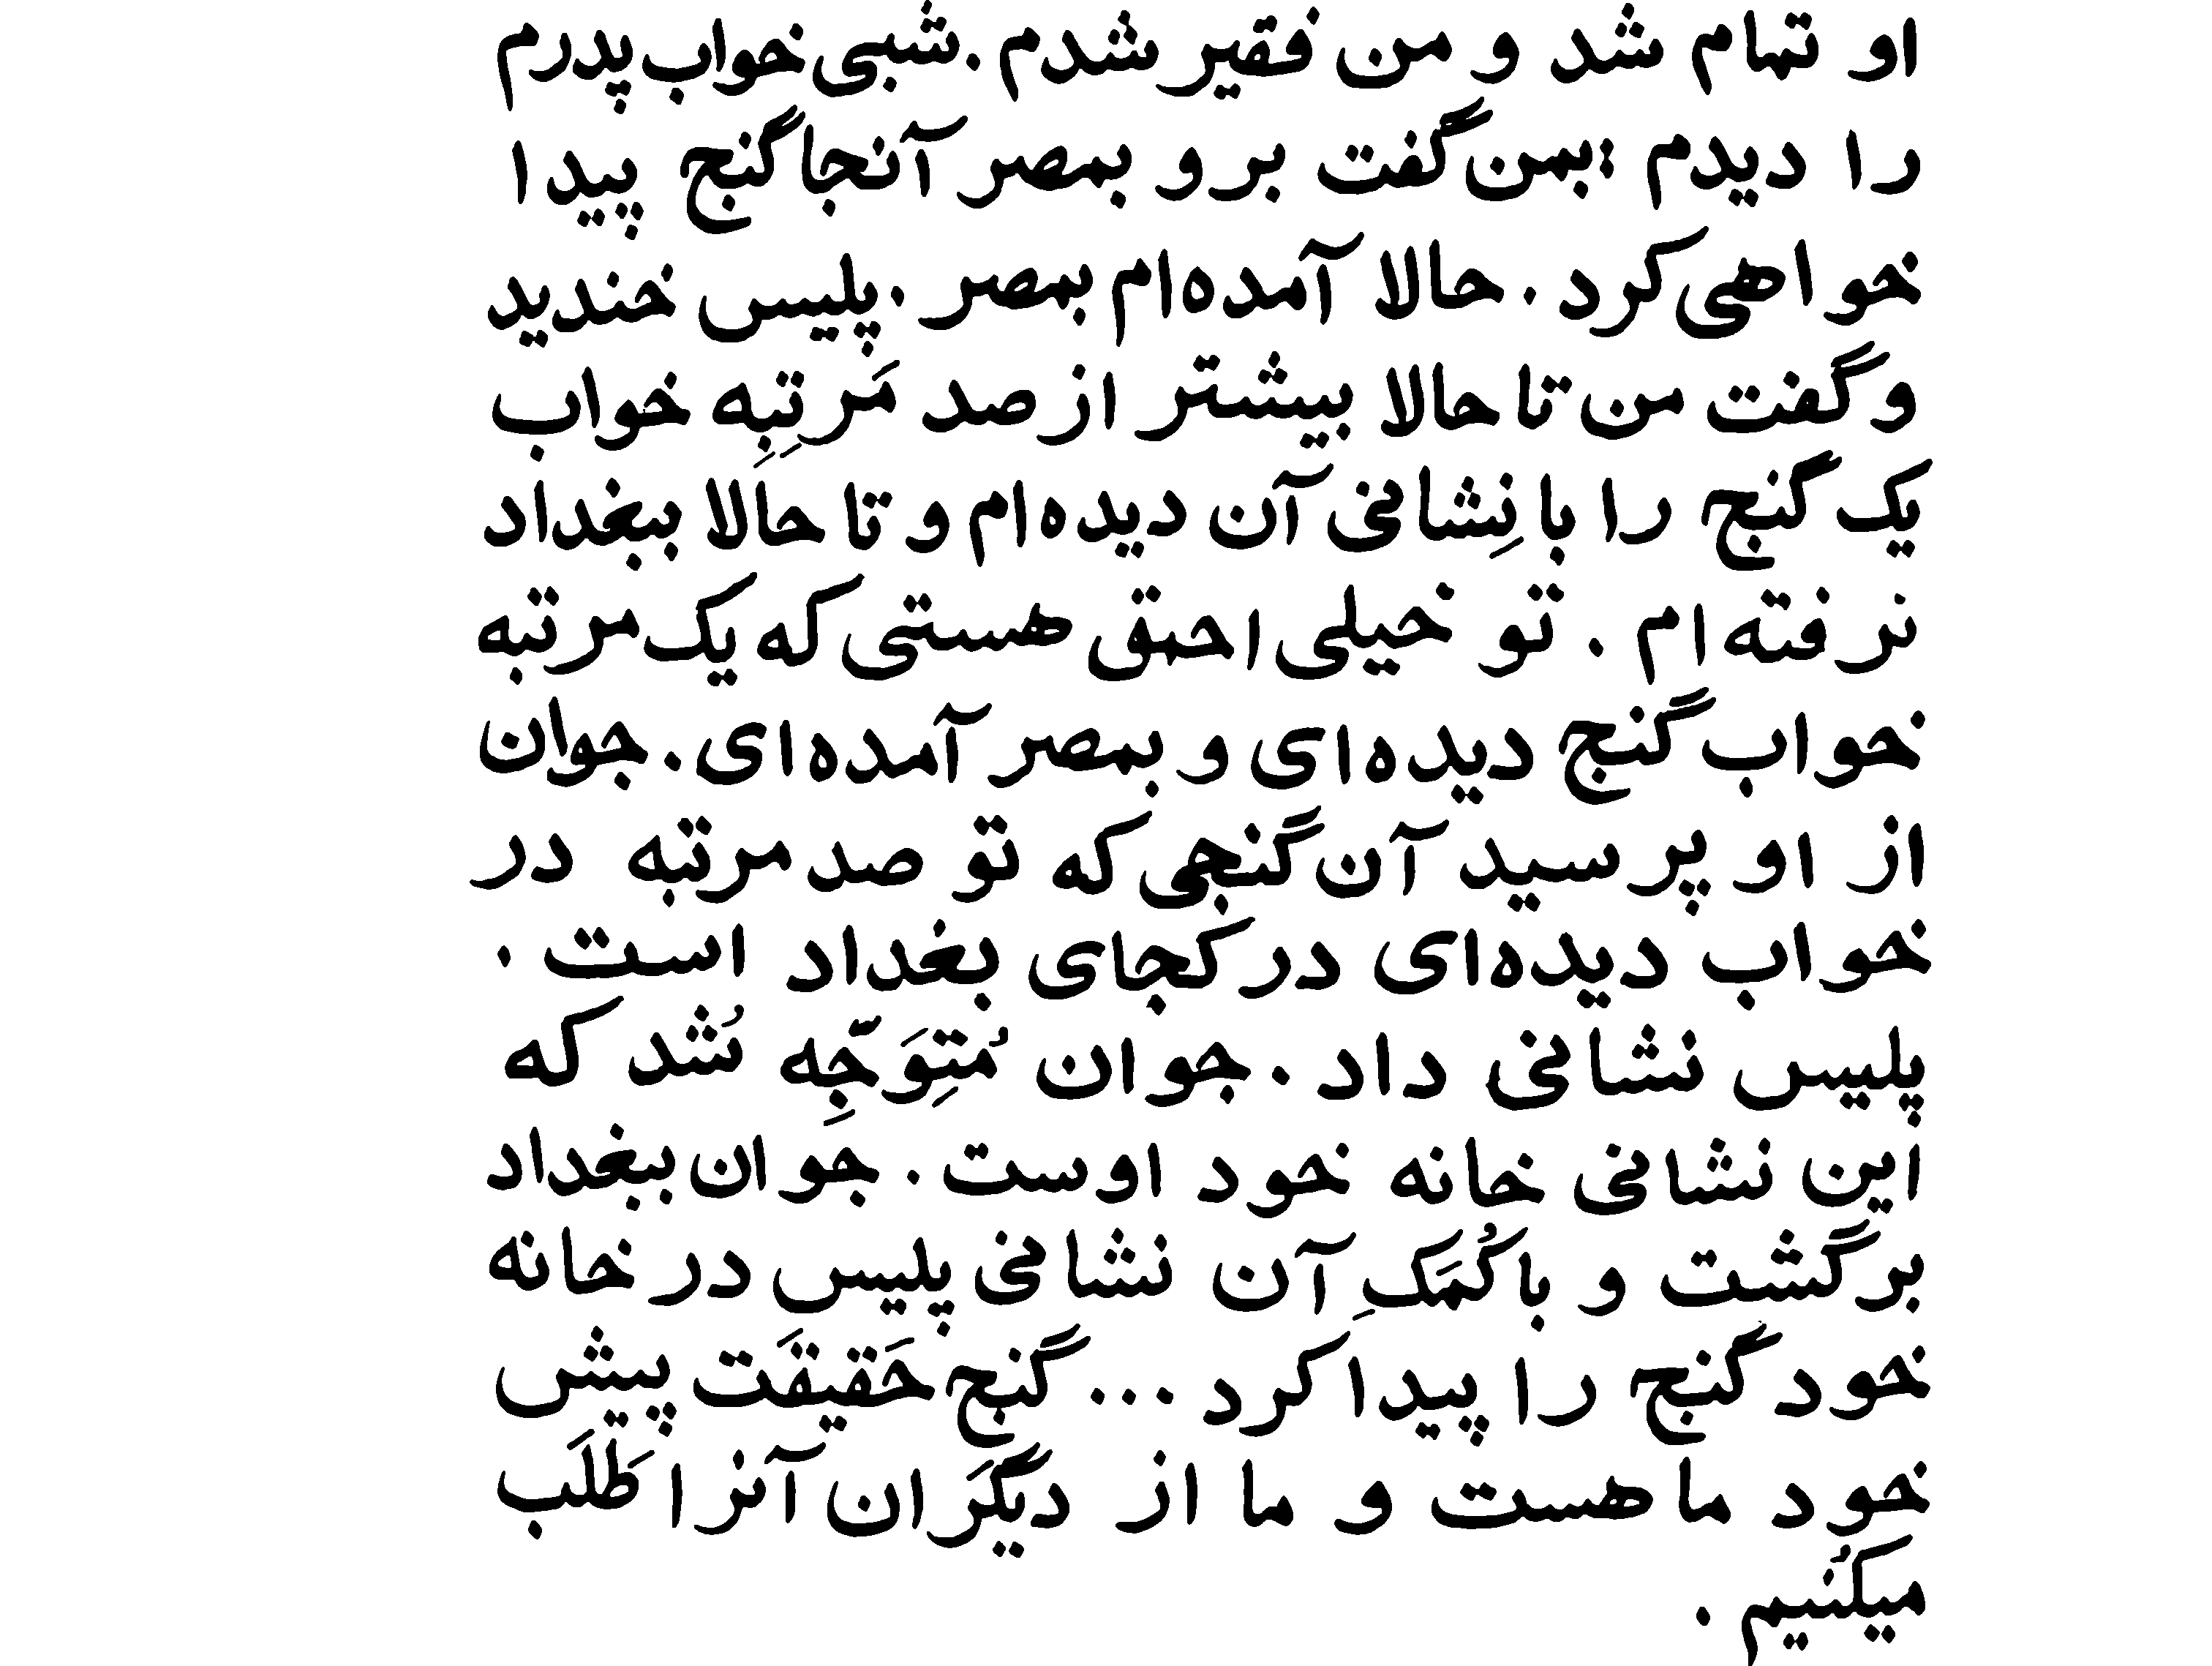 او تمام شد و من فقیر شدم . شبی خواب پدرم
را دیدم : بمن گفت برو بمصر آنجا گنج پیدا
خواهی کرد . حالا آمده‌ام بمصر . پلیس خندید
و گفت من تا حالا بیشتر از صد مَرتِبِه خواب
یک گنج را با نِشانی آن دیده‌ام و تا حالا ببغداد
نرفته‌ام . تو خیلی احمق هستی که یک مرتبه
خواب گنج دیده‌ای و بمصر آمده‌ای . جوان
از او پرسید آن گنجی که تو صد مرتبه در
خواب دیده‌ای در کجای بغداد است .
پلیس نشانی داد . جوان مُتِوَجِّه شُد که
این نشانی خانه خود اوست . جوان ببغداد
برگشت و با کُمَکِ آن نشانی پلیس در خانه
خود گنج را پیدا کرد ... گنج حَقیقَت پیش
خود ما هست و ما از دیگَران آنرا طَلَب
میکُنیم .